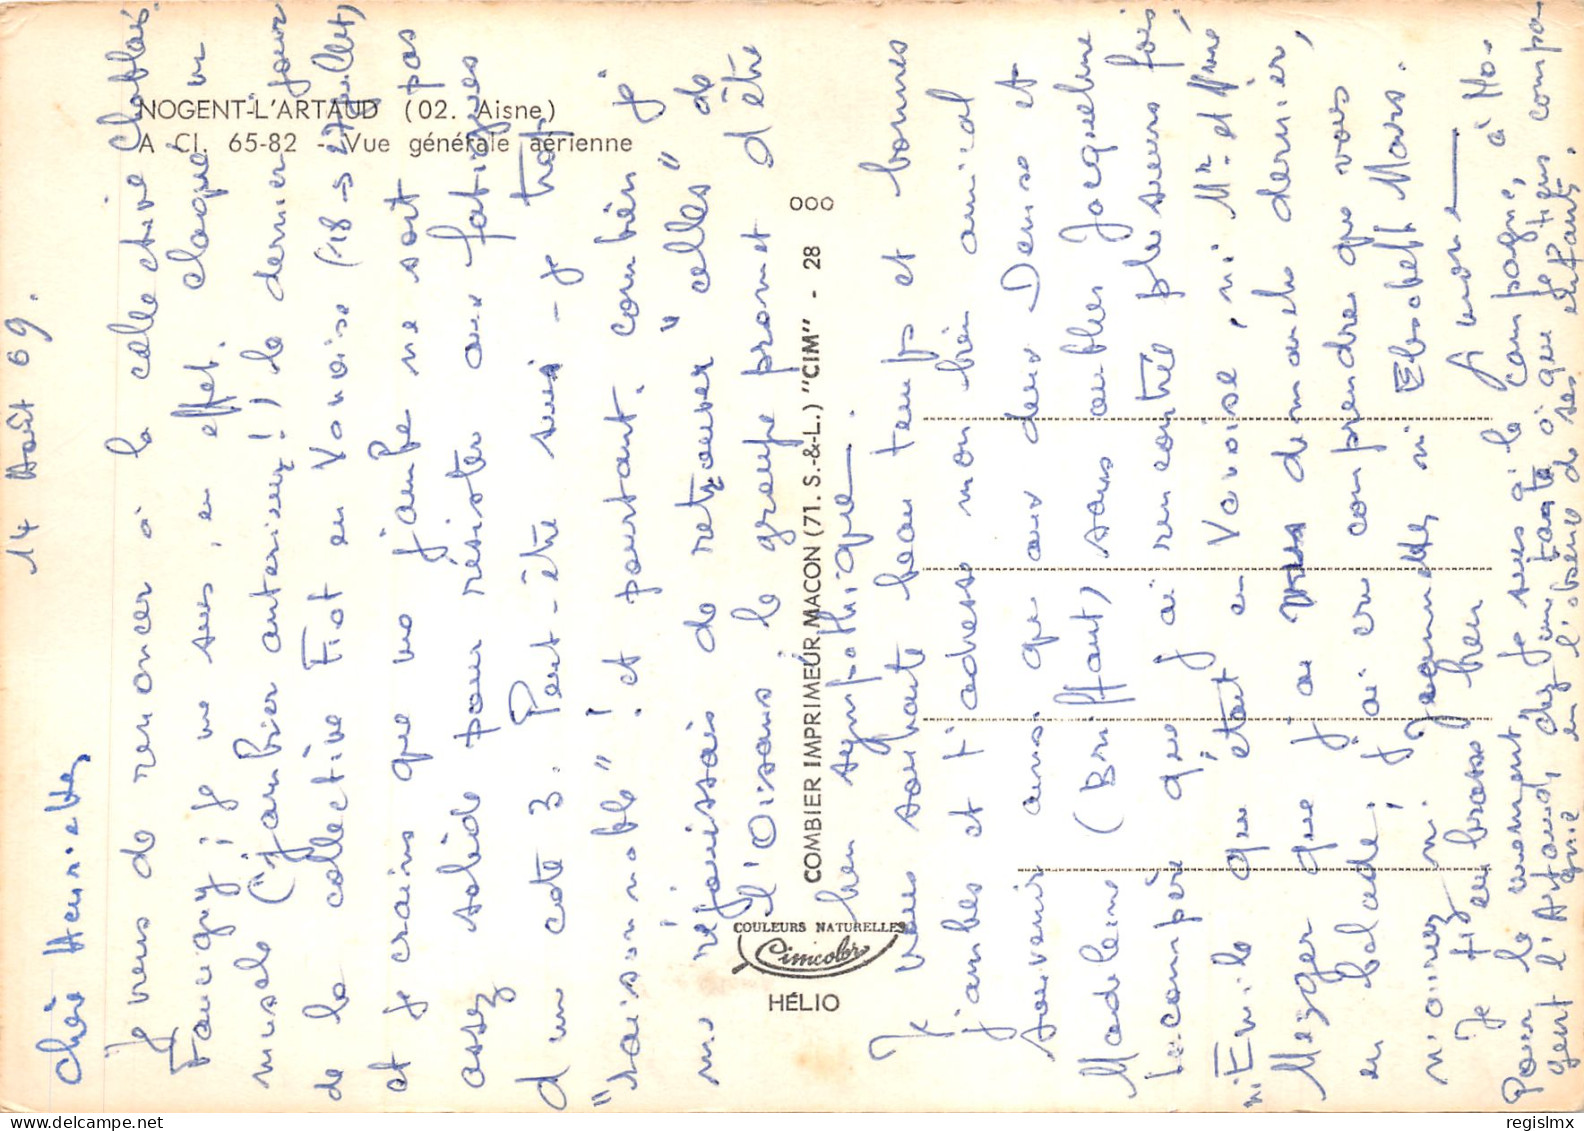 NOGENT-L'ARTAUD (02. Aisne)
A CI. 65-82 - Vue générale aérienne
14 Août 69.
Chère Henriette,
Je viens de renoncer à la collective Chablais
Faucigny ; je me suis, en effet, claqué un
muscle ("jambier antérieur" !) le dernier jour
de la collective Fiot en Vanoise (18 → 27 juillet)
et je crains que ma jambe ne soit pas
assez solide pour résister aux fatigues
d'un cote 3. Peut-être suis-je trop
"raisonnable" ! et pourtant, combien je
me réjouissais de retrouver "celles" de
l'Oisans le groupe promet d'être
bien sympathique.
Je vous souhaite beau temps et bonnes
jambes et t'adresse mon bien amical
souvenir ainsi que aux deux Denise et
Madeleine (Briffaut), sans oublier Jacqueline
Lecompère que j'ai rencontré plusieurs fois
Emile qui était en Vanoise, ni Mr et Mme
Mezger que j'ai vus dimanche dernier,
en balade ; j'ai cru comprendre que vous
n'oubliez ni Jeannette, ni Elisabeth Mars.
Je t'embrasse bien
Simone
Pour le moment, je suis à la campagne, à No-
gent l'Artaud, chez une tante à qui je tiens compa
gnie en l'absence de ses enfants.
COMBIER IMPRIMEUR MACON (71. S.-&-L.) "CIM" - 28 000
COULEURS NATURELLES
Cimcolor
HÉLIO
regislmx